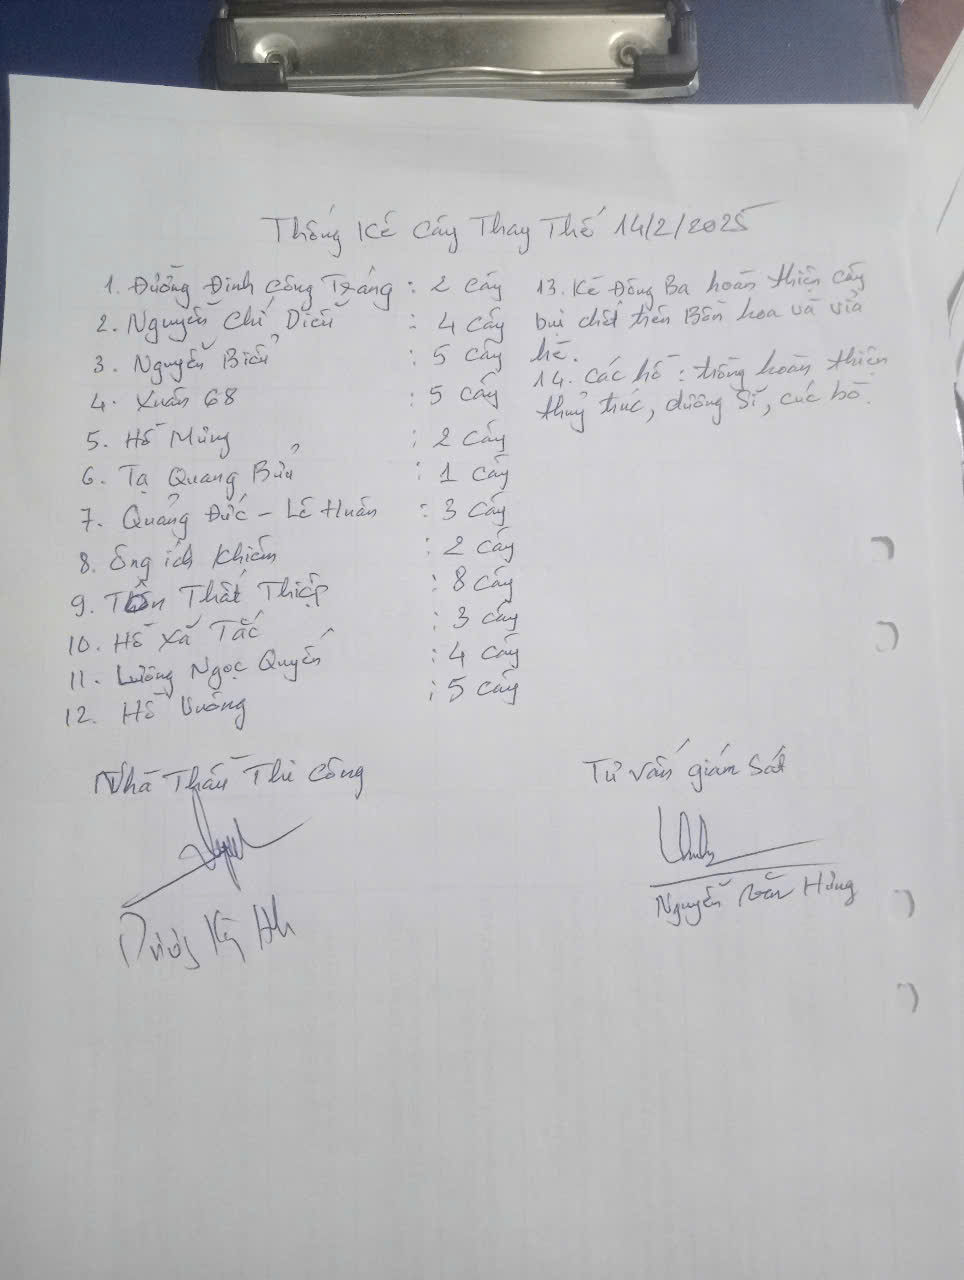 Thống Kê Cây Thay Thế 14/2/2025
1. Đường Đinh Công Tráng : 2 cây
2. Nguyễn Chí Diểu : 4 cây
3. Nguyễn Biểu : 5 cây
4. Xuân 68 : 5 cây
5. Hồ Mưng : 2 cây
6. Tạ Quang Bửu : 1 cây
7. Quảng Đức - Lê Huân : 3 cây
8. Ông ích Khiêm : 2 cây
9. Tôn Thất Thiệp : 8 cây
10. Hồ Xã Tắc : 3 cây
11. Lương Ngọc Quyến : 4 cây
12. Hồ Vuông : 5 cây
13. Kè Đông Ba hoàn thiện cây
bụi chết trên Bồn hoa và vỉa
hè.
14. Các hồ : trồng hoàn thiện
thuỷ trúc, dương Sĩ, cúc bò.
Nhà Thầu Thi Công
Tư vấn giám Sát
Nguyễn Văn Hùng